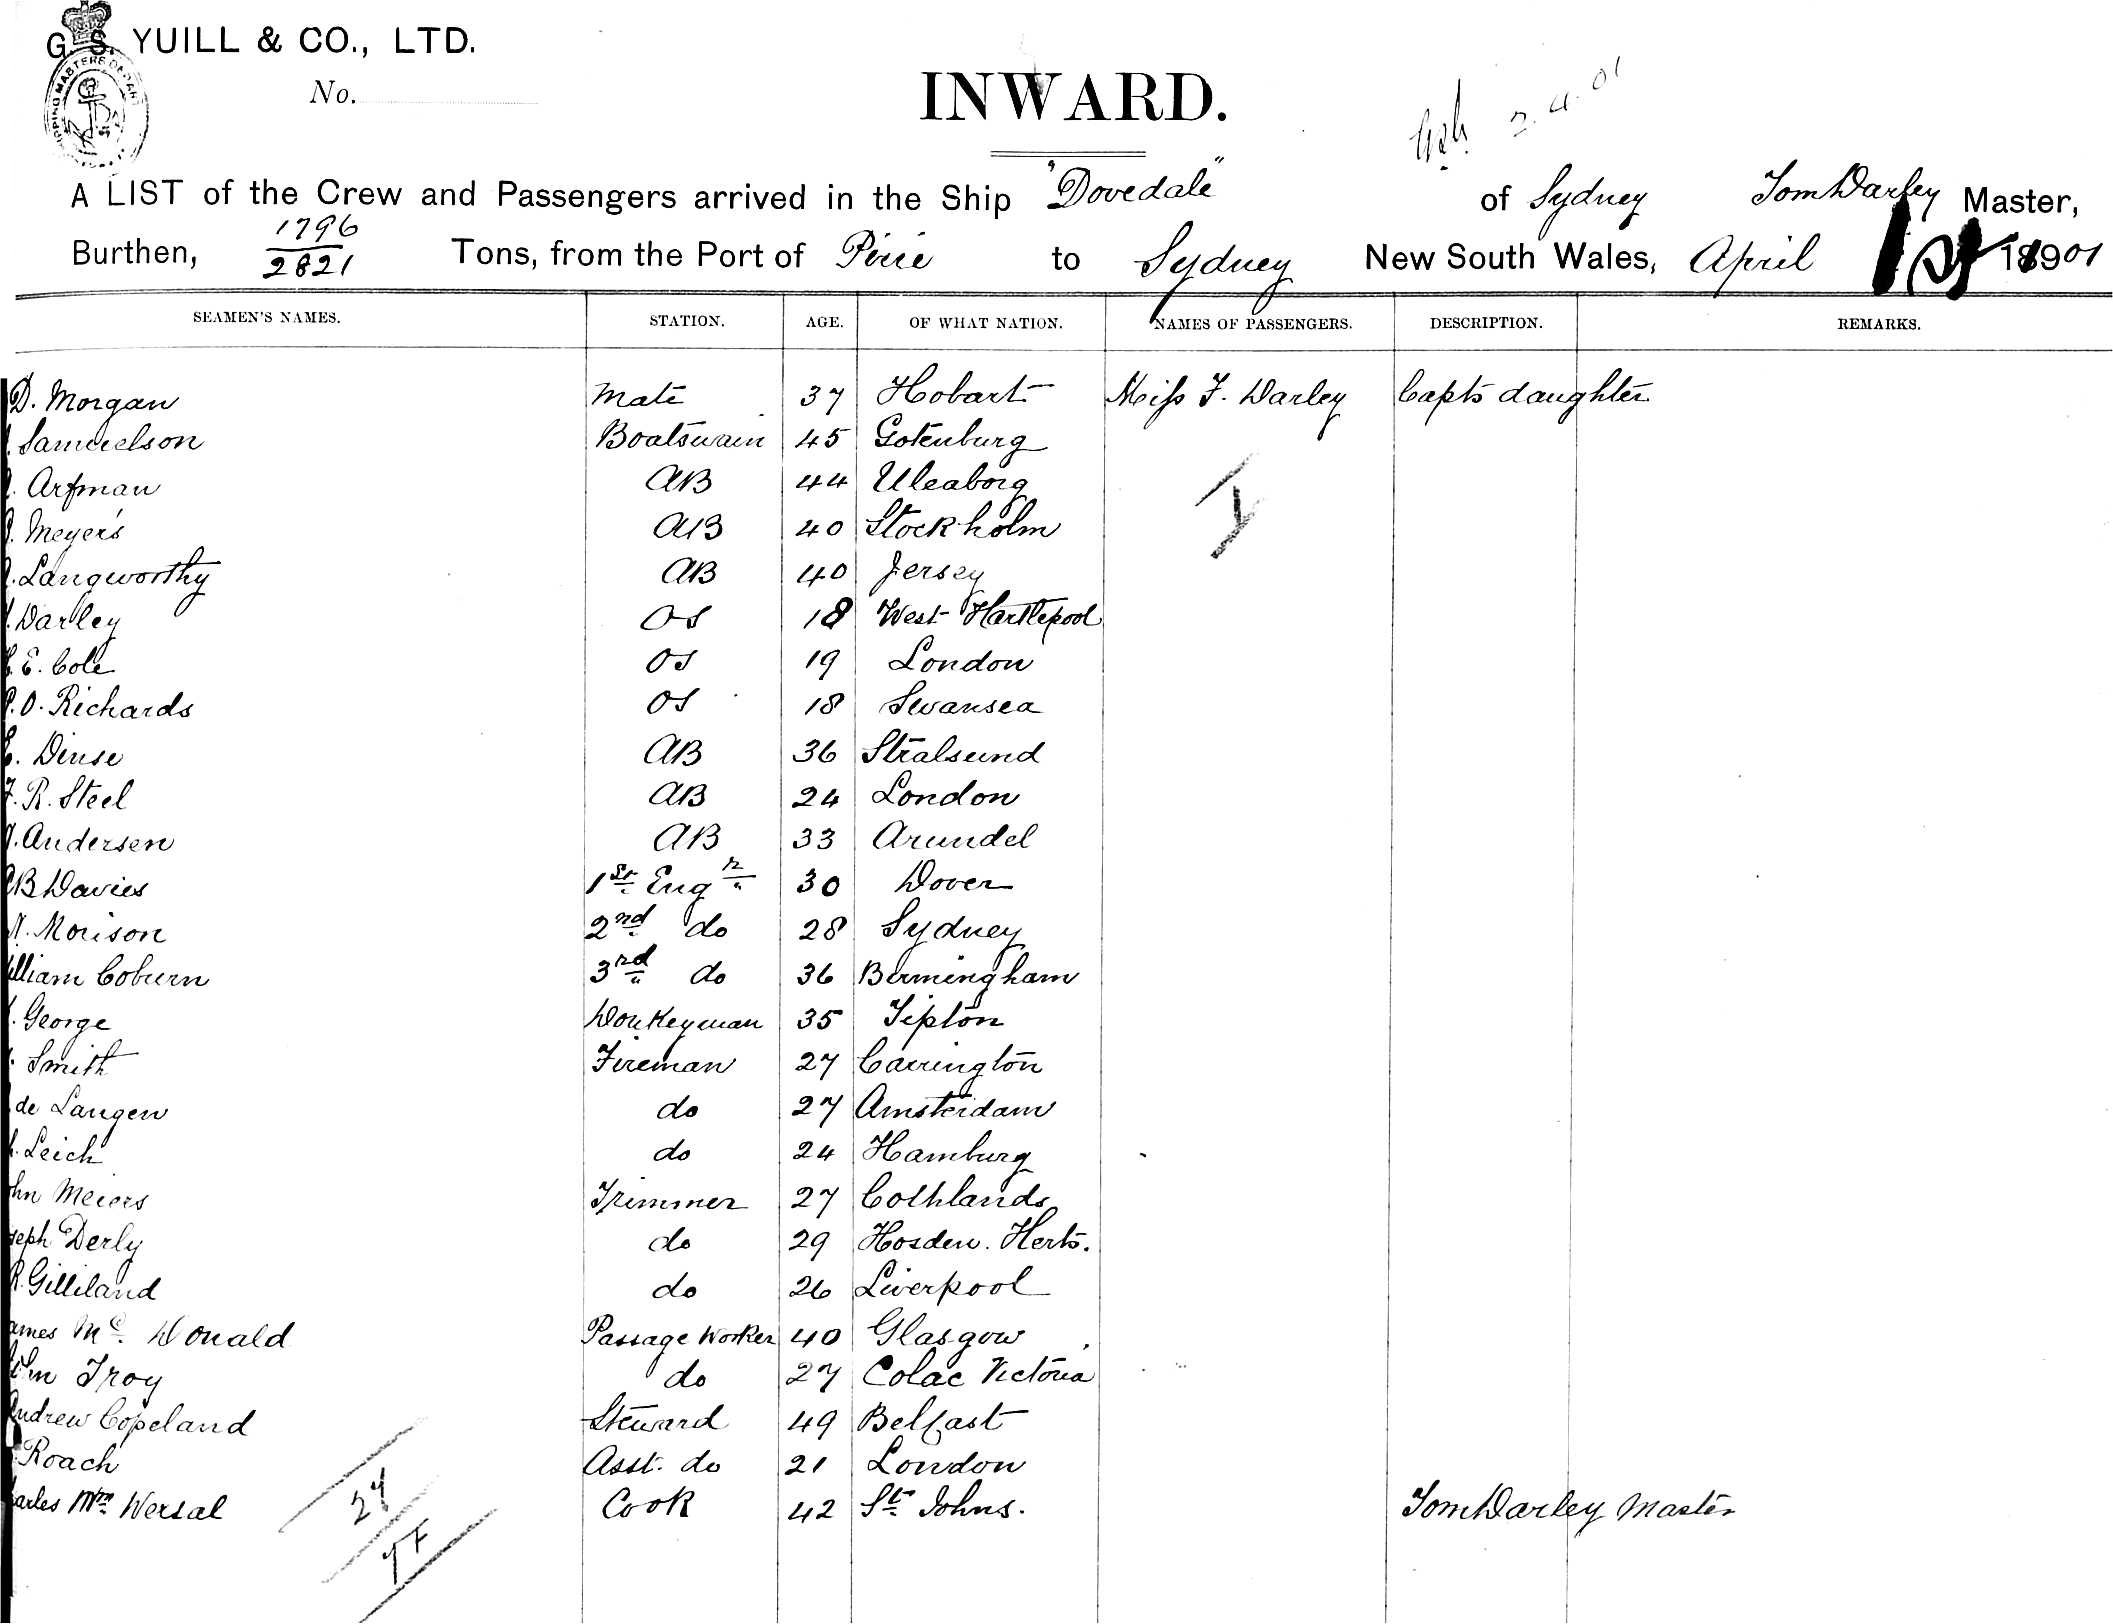 G. S. YUILL & CO., LTD.
No.
INWARD.
2.4.01
A LIST of the Crew and Passengers arrived in the Ship "Dovedale" of Sydney Tom Darley Master,
Burthen, 1796/2821 Tons, from the Port of Pirie to Sydney New South Wales, April 1st 1901
SEAMEN'S NAMES. STATION. AGE. OF WHAT NATION. NAMES OF PASSENGERS. DESCRIPTION. REMARKS.
D. Morgan Mate 37 Hobart Miss F. Darley Capts daughter
Samuelson Boatswain 45 Gotenburg
Arfman AB 44 Uleaborg
Meyers AB 40 Stockholm
Langworthy AB 40 Jersey
Darley OS 18 West Hartlepool
E. Cole OS 19 London
O. Richards OS 18 Swansea
Dinse AB 36 Stralsund
F. R. Steel AB 24 London
Andersen AB 33 Arundel
B Davies 1st Engr 30 Dover
Morison 2nd do 28 Sydney
lliam Coburn 3rd do 36 Birmingham
George Donkeyman 35 Tipton
Smith Fireman 27 Carrington
de Langen do 27 Amsterdam
Leich do 24 Hamburg
hn Meiers Trimmer 27 Cothlands
seph Derly do 29 Hosden. Herts.
R. Gilliland do 26 Liverpool
ames Mc. Donald Passage Worker 40 Glasgow
Troy do 27 Colac Victoria
Andrew Copeland Steward 49 Belfast
Roach Asst. do 21 London
arles Wm Wersal Cook 42 St Johns. Tom Darley Master
27